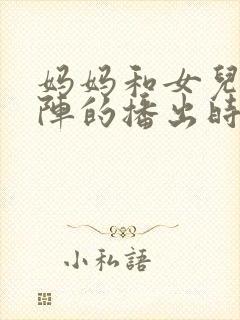 妈妈和女兒
陣的播出時
小私語